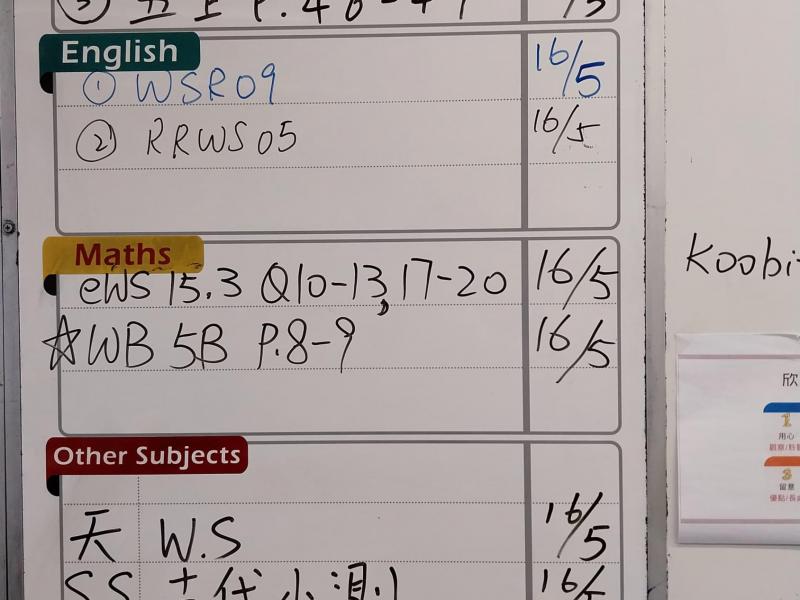 English
① WSR09 16/5
② RRWS05 16/5
Maths
eWS 15.3 Q10-13, 17-20 16/5
☆WB 5B P.8-9 16/5
Other Subjects
天 W.S 16/5
Koobi
欣
1
用心
3
留意